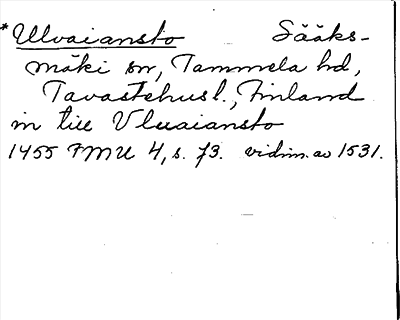 *Ulvaiansto Sääks-
mäki sn, Tammela hd,
Tavastehus l., Finland
in till Vluaiansto
1455 FMU 4, s. 73. vidim. av 1531.